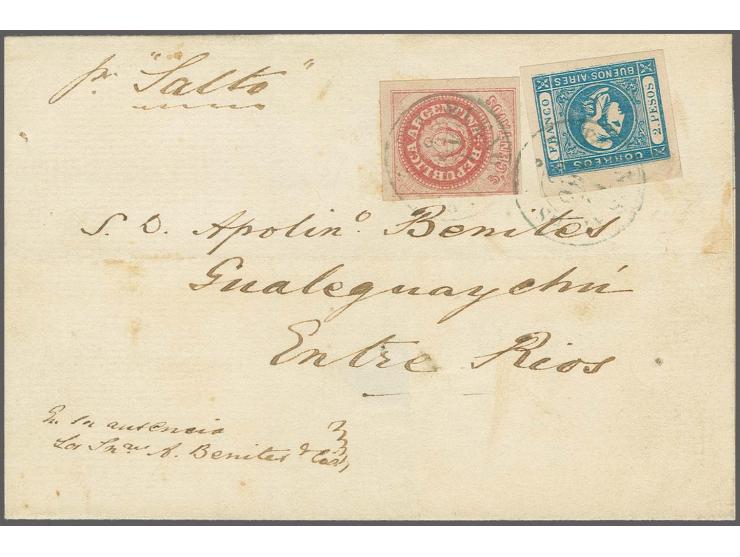 pr "Salto"
REPUBLICA ARGENTINA
5 CENTAVOS
CORREOS
FRANCO
BUENOS AIRES
2 PESOS
S. D. Apolinº Benites
Gualeguaychú
Entre Rios
En su ausencia
Los Sres A. Benites & Cia